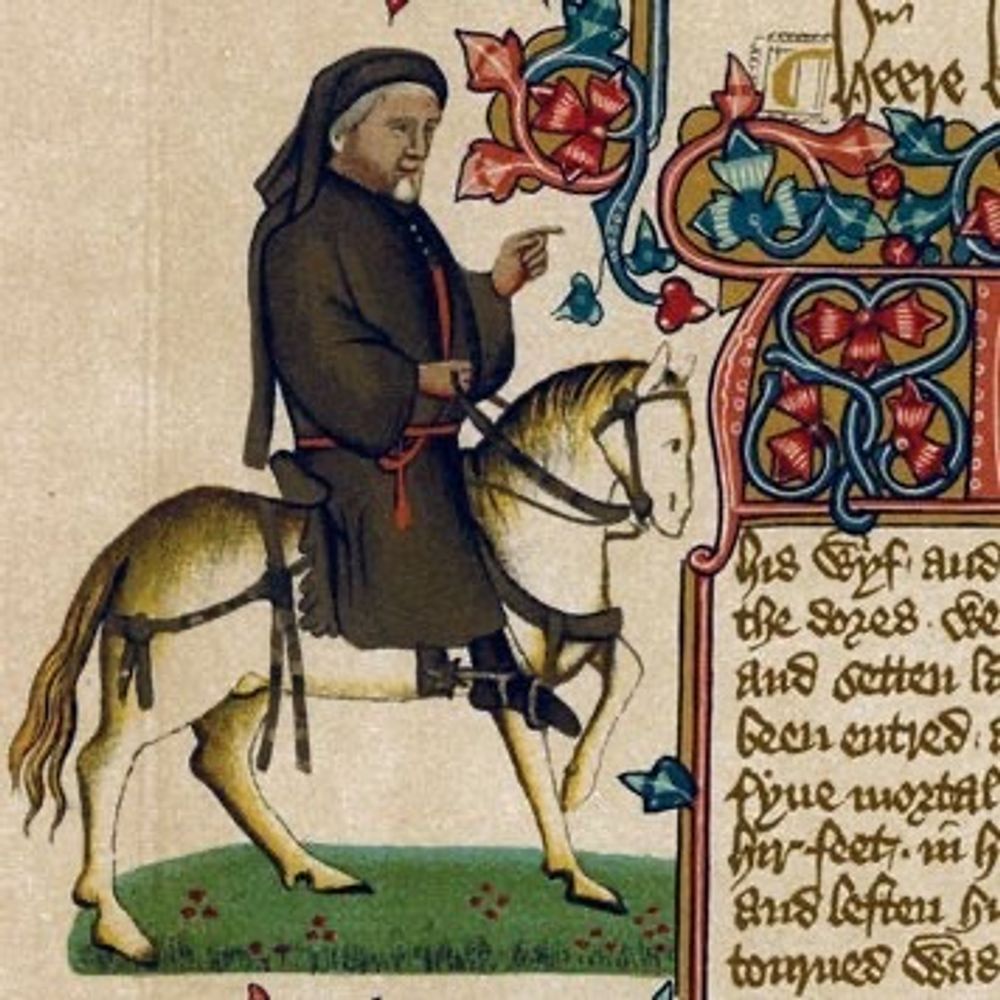 heere
his Wyf. and
the dores. We
and setten
been entred.
fyue mortal
hir feet. in
and leften
tourned Was